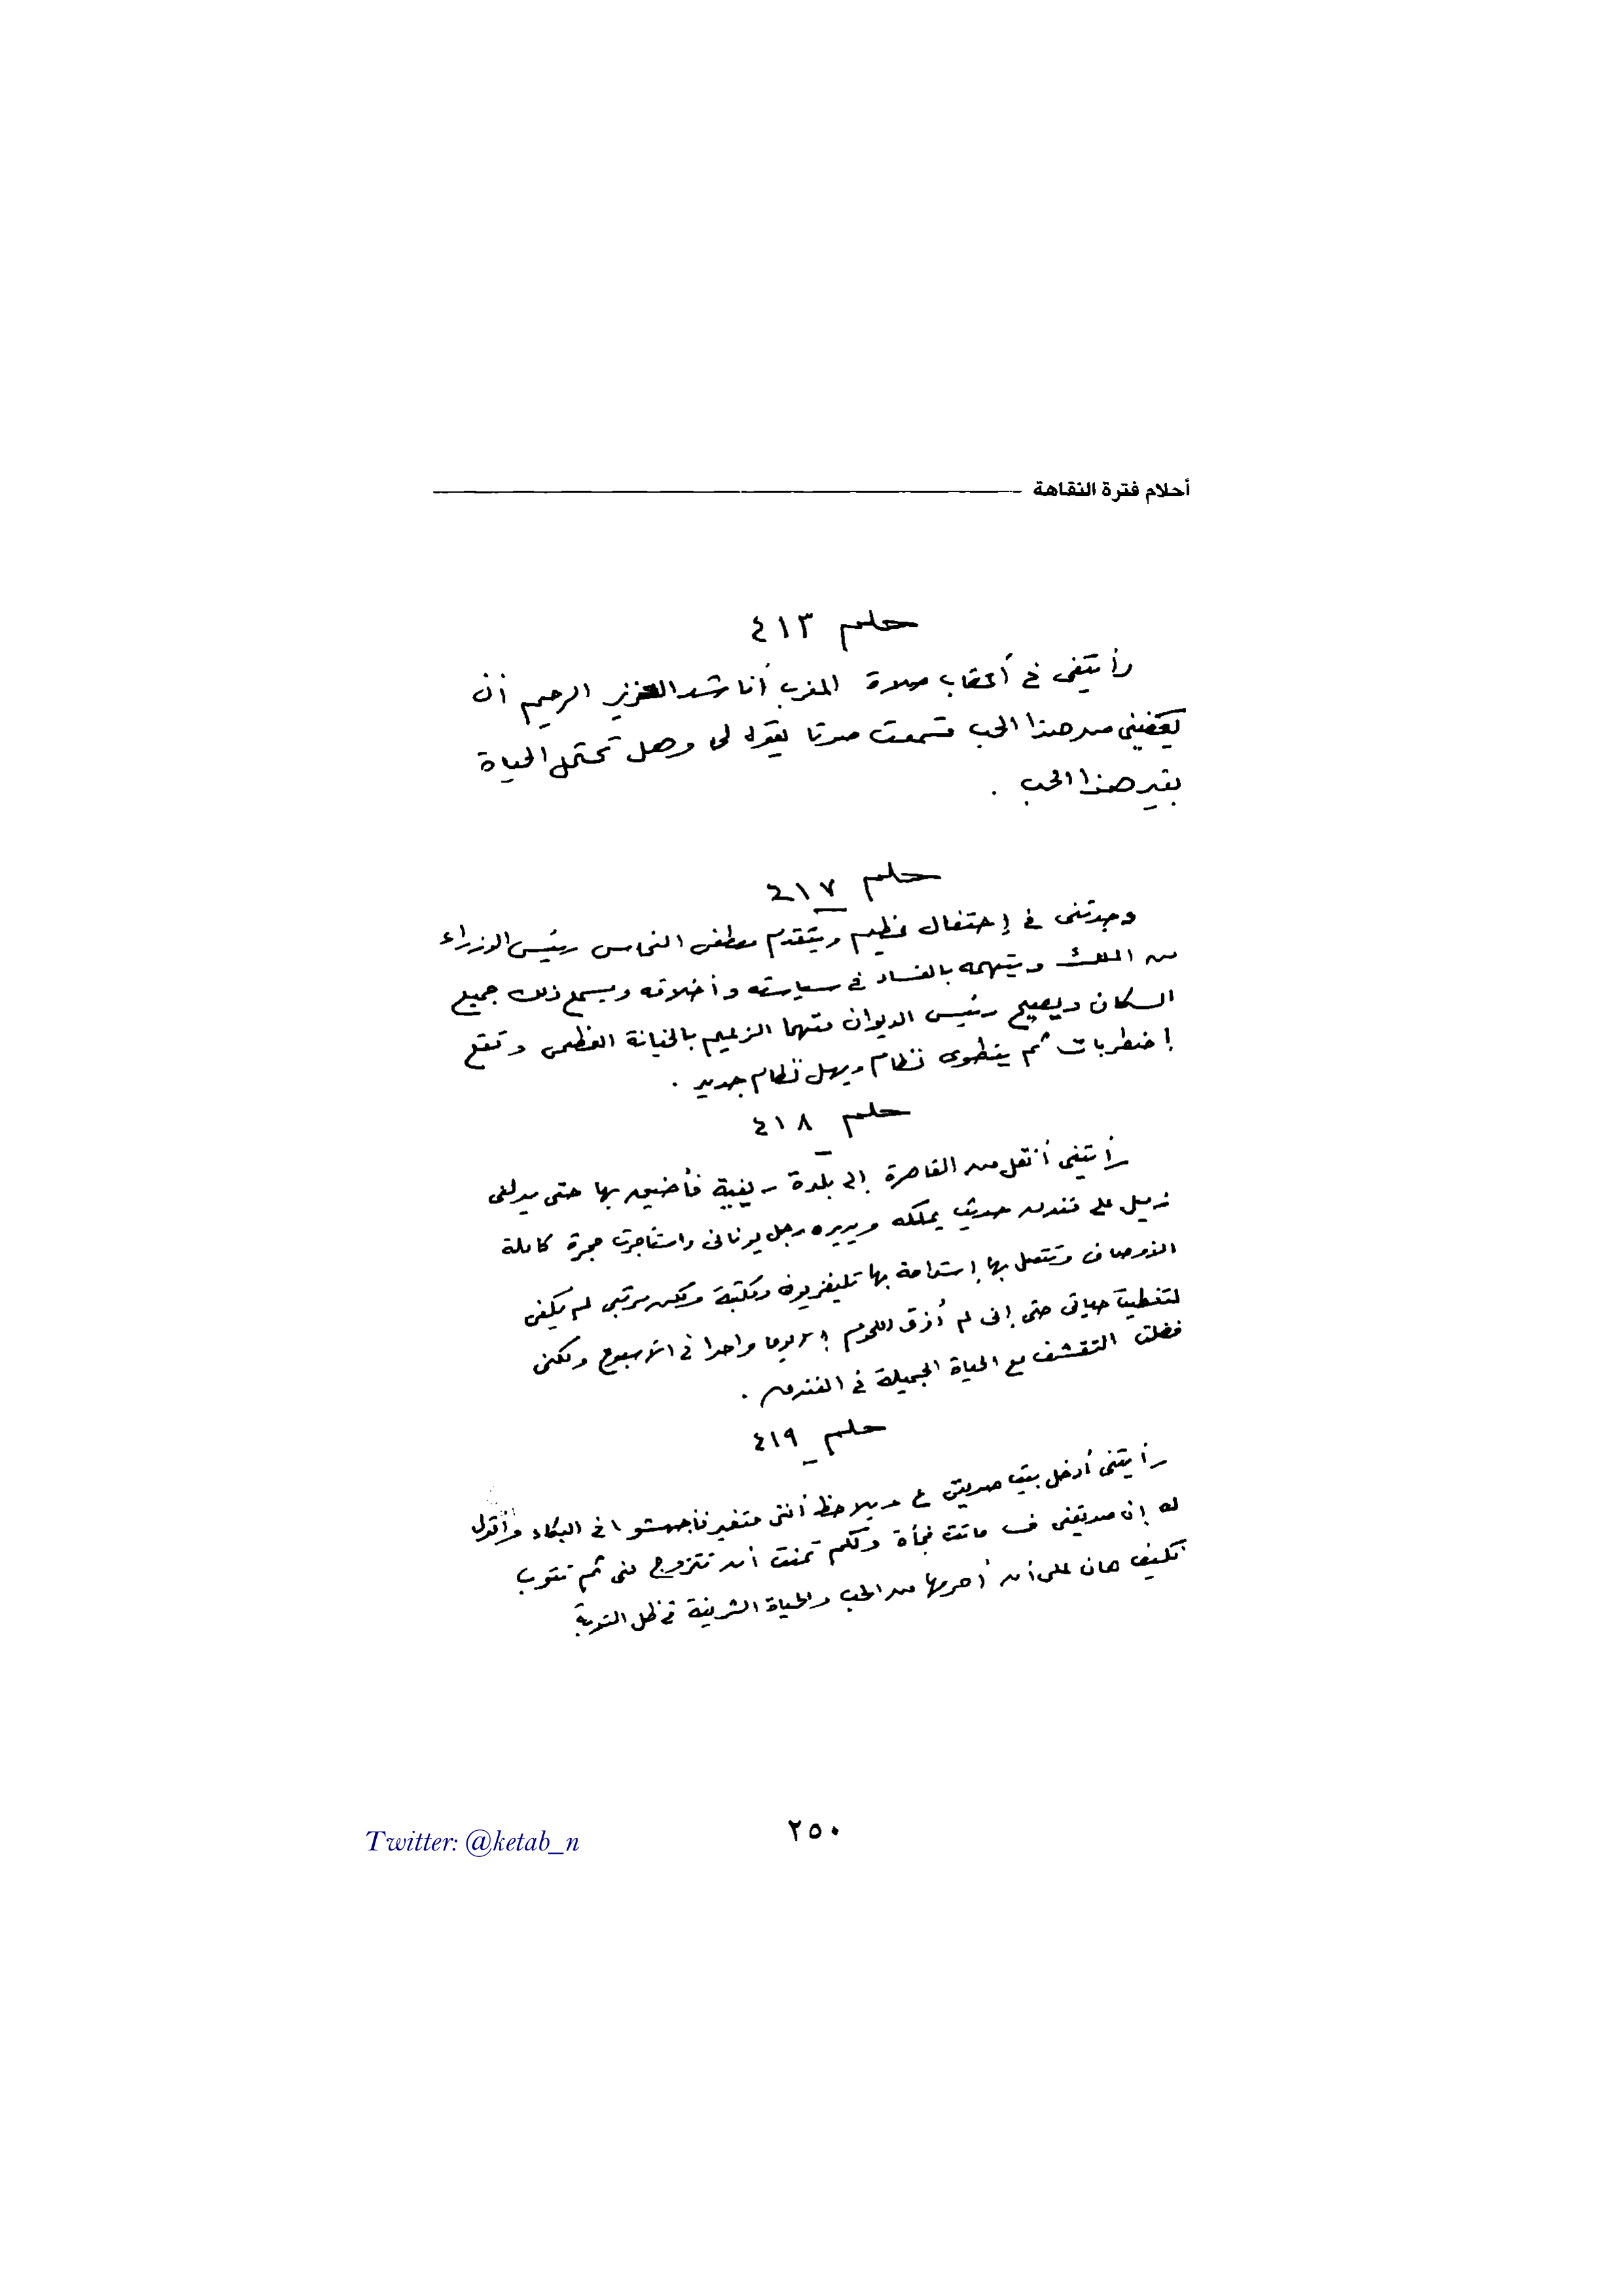 أحلام فترة النقاهة
حلم ٤١٣
رأيتنى فى أعقاب صلاة المغرب أناشد العزيز الرحيم أن
يعفينى من هذا الحب فسمعت صوتا يقول لى وهل تحتمل الحياة
بغير هذا الحب .
حلم ٤١٧
وجدتنى فى إحتفال عظيم ويتقدم مصطفى النحاس رئيس الوزراء
من الملك ويتهمه بالفساد فى سياسته وأخلاقه ويسمع ذلك جميع
السكان ويصيح رئيس الديوان متهما الزعيم بالخيانة العظمى وتقع
إضطربات ثم ينطوى نظام ويهل نظام جديد .
حلم ٤١٨
رأيتنى أنتقل من القاهرة إلى بلدة ريفية فأضيق بها حتى يدلنى
زميل على فندق حديث يملكه ويديره رجل يونانى واستأجرت حجرة كاملة
الأوصاف وتتصل بها إستراحة بها تليفزيون ومكتبة ولكن مرتبى لم يكفى
لتغطية حياتى حتى إنى لم أذق اللحوم إلا يوما واحدا فى الأسبوع ولكنى
فضلت التقشف مع الحياة الجميلة فى الفندق .
حلم ٤١٩
رأيتنى أدخل بيت صديقى ع ويلاحظ أننى متغير فأجهشوا فى البكاء وأقول
له إن صديقتى ف ماتت فجأة ولكم تمنت أن تتزوج منى ثم تتوب
فكيف هان على أن أحرمها من الحب والحياة الشريفة فى ظل التوبة
٢٥٠
Twitter: @ketab_n